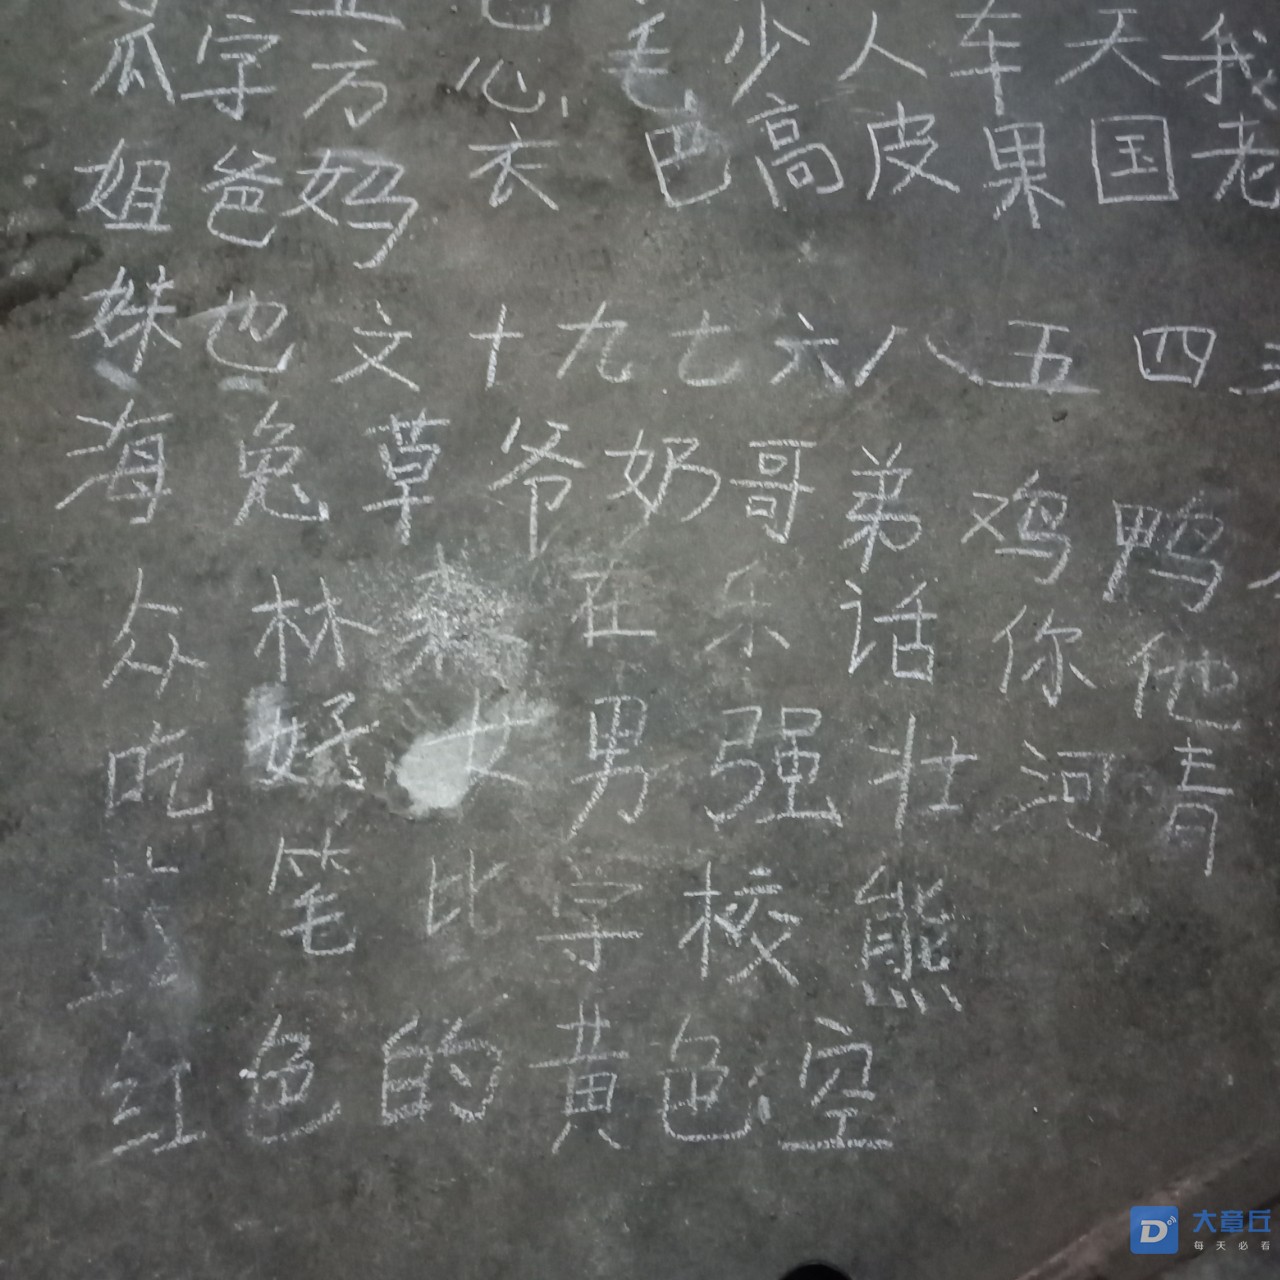 瓜字方心毛少人车天我
姐爸妈衣巴高皮果国老
妹也文十九七六八五四
海兔草爷奶哥弟鸡鸭
众林森在乐话你他
吃好女男强壮河青
笔比字校熊
红色的黄色空
大章丘
每天必看